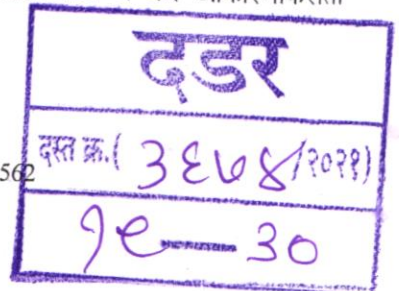 दडर
562 दस्त क्र.( ३६७४/२०२१)
१९—३०